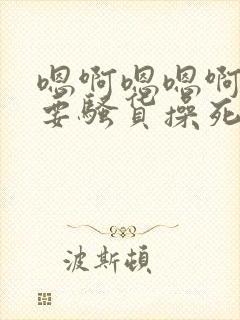 嗯啊嗯嗯啊
要骚货操死
波斯頓